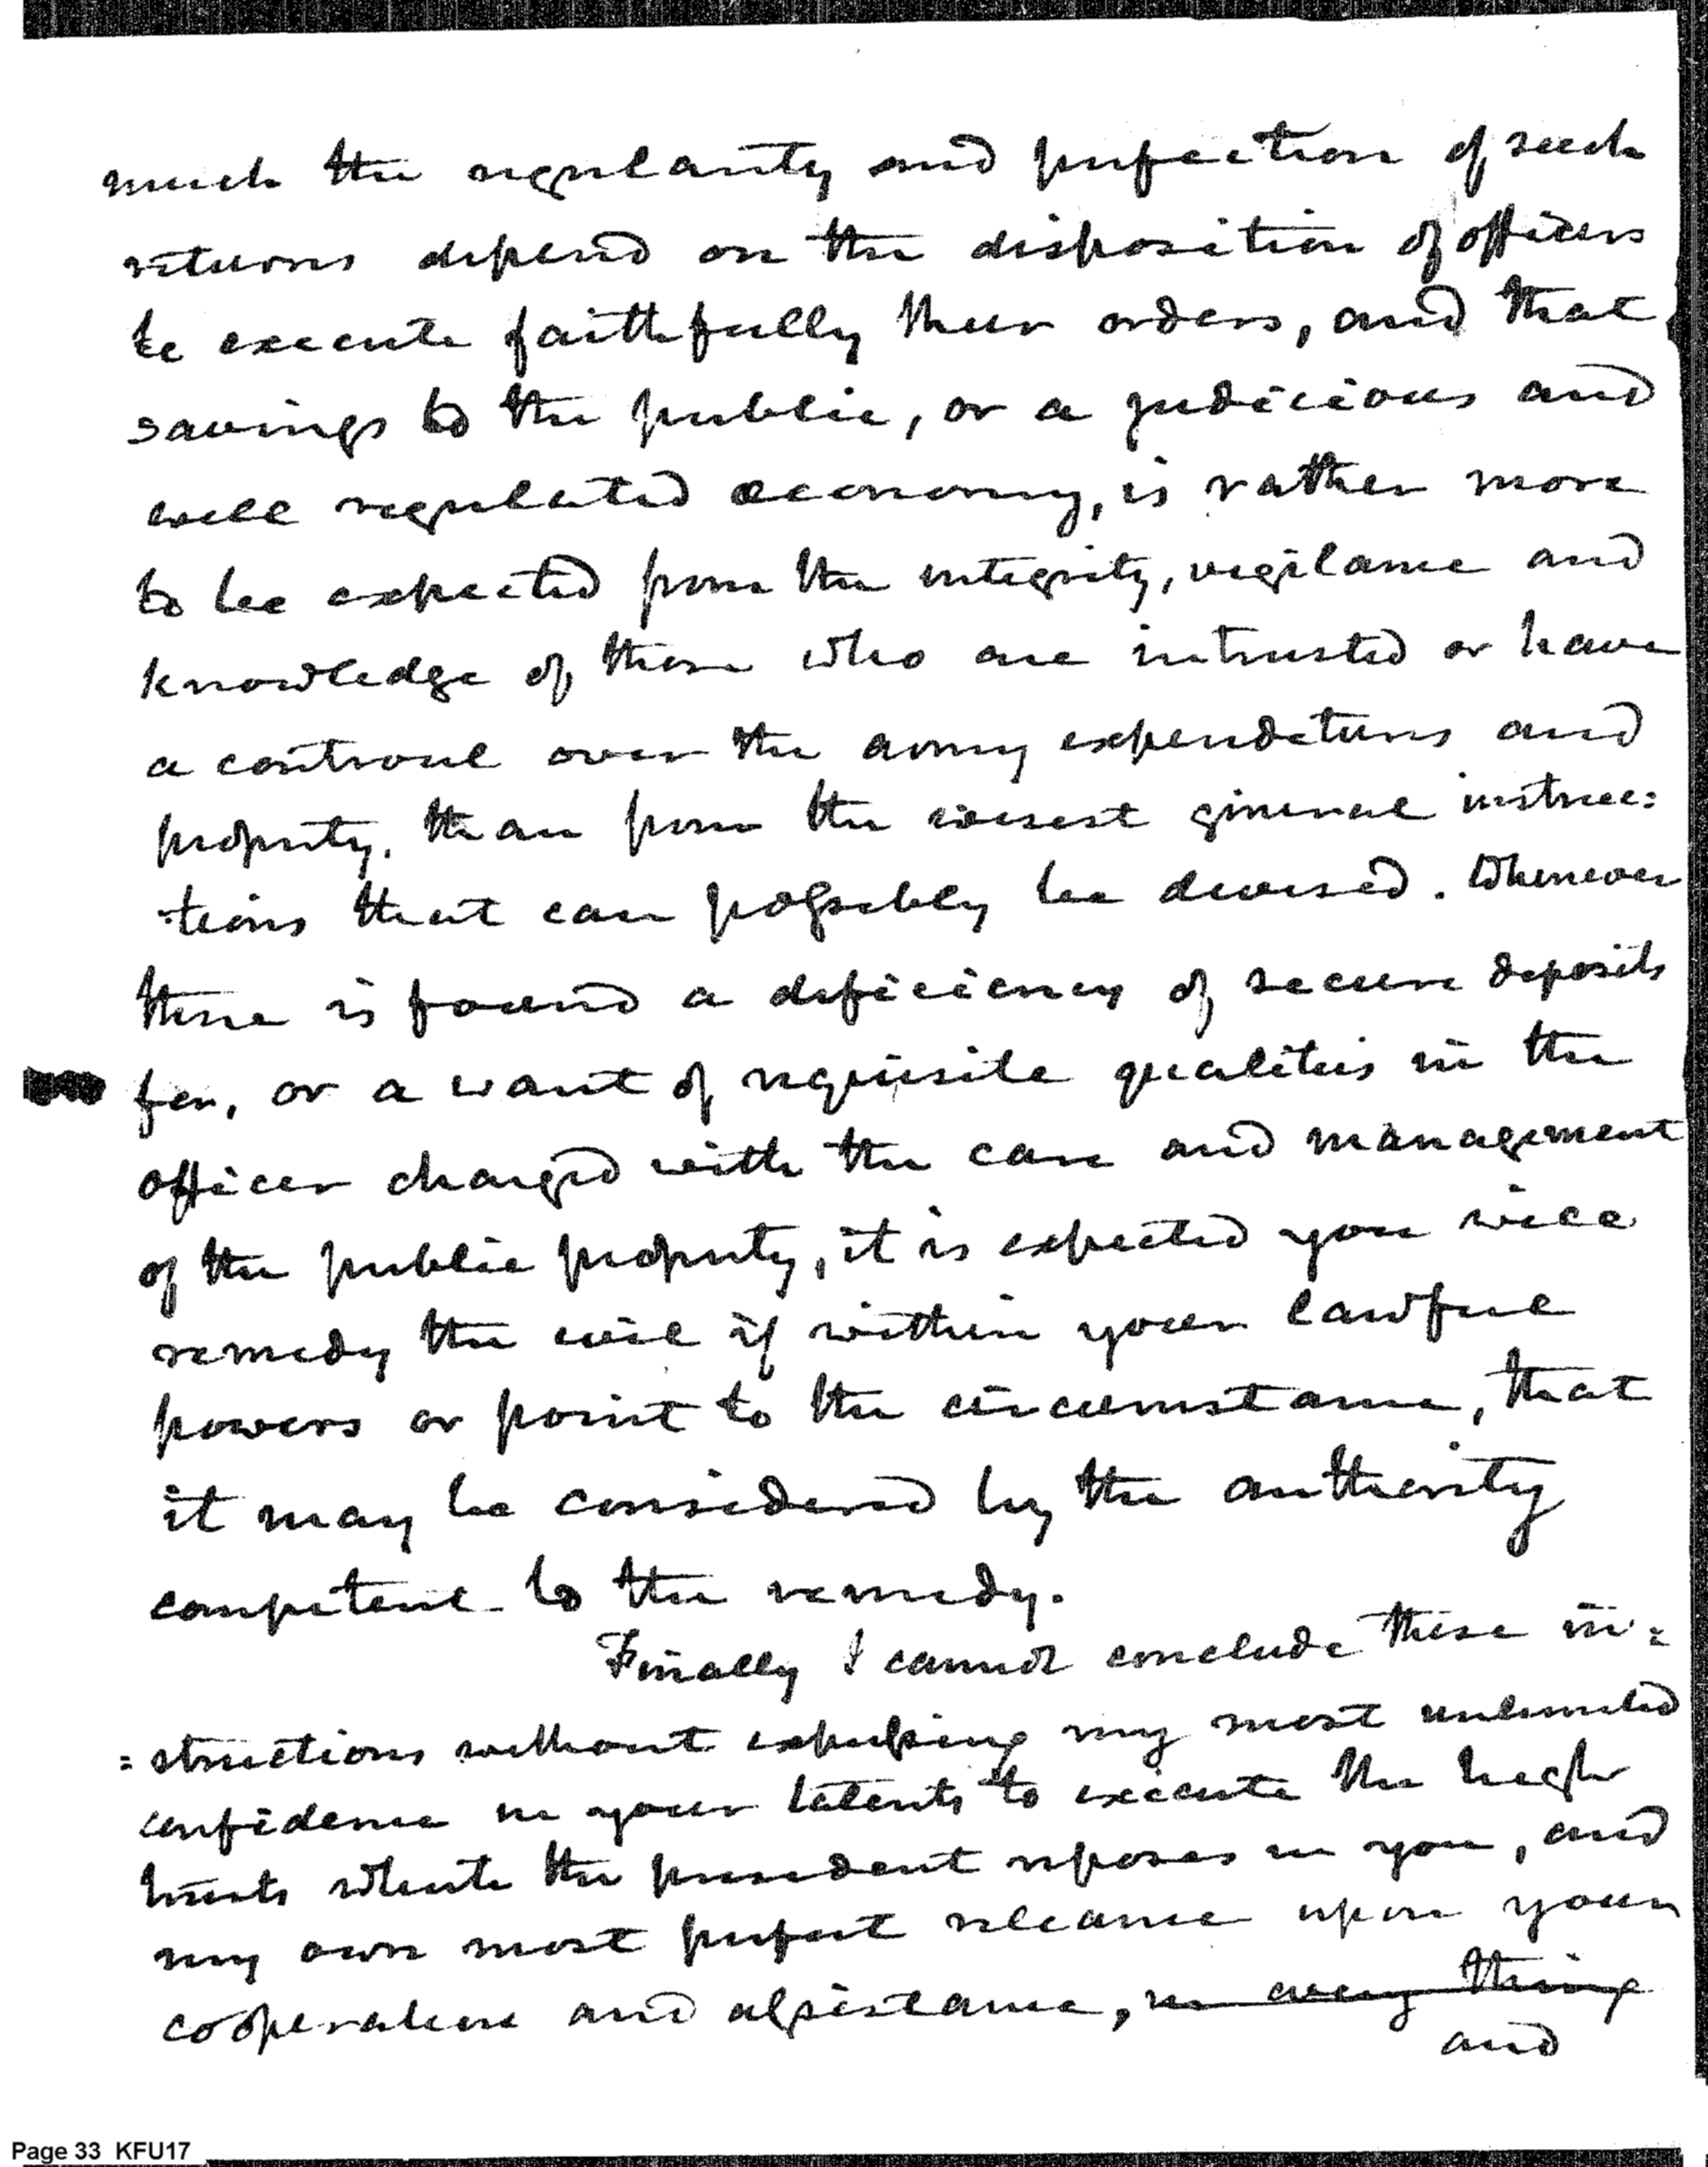 much the regularity and perfection of such
returns depend on the disposition of officers
to execute faithfully their orders, and that
savings to the public, or a judicious and
well regulated oeconomy, is rather more
to be expected from the integrity, vigilance and
knowledge of those who are intrusted or have
a controul over the army expenditures and
property, than from the wisest general instruc=
=tions that can possibly be devised. Whenever
there is found a deficiency of secure deposits
for, or a want of requisite qualities in the
officer charged with the care and management
of the public property, it is expected you will
remedy the evil if within your lawful
powers or point to the circumstance, that
it may be considered by the authority
competent to the remedy.
Finally I cannot conclude these in=
=structions without expressing my most unlimited
confidence in your talents to execute the high
trusts which the president reposes in you, and
my own most perfect reliance upon your
cooperation and assistance, in every thing
and
Page 33 KFU17